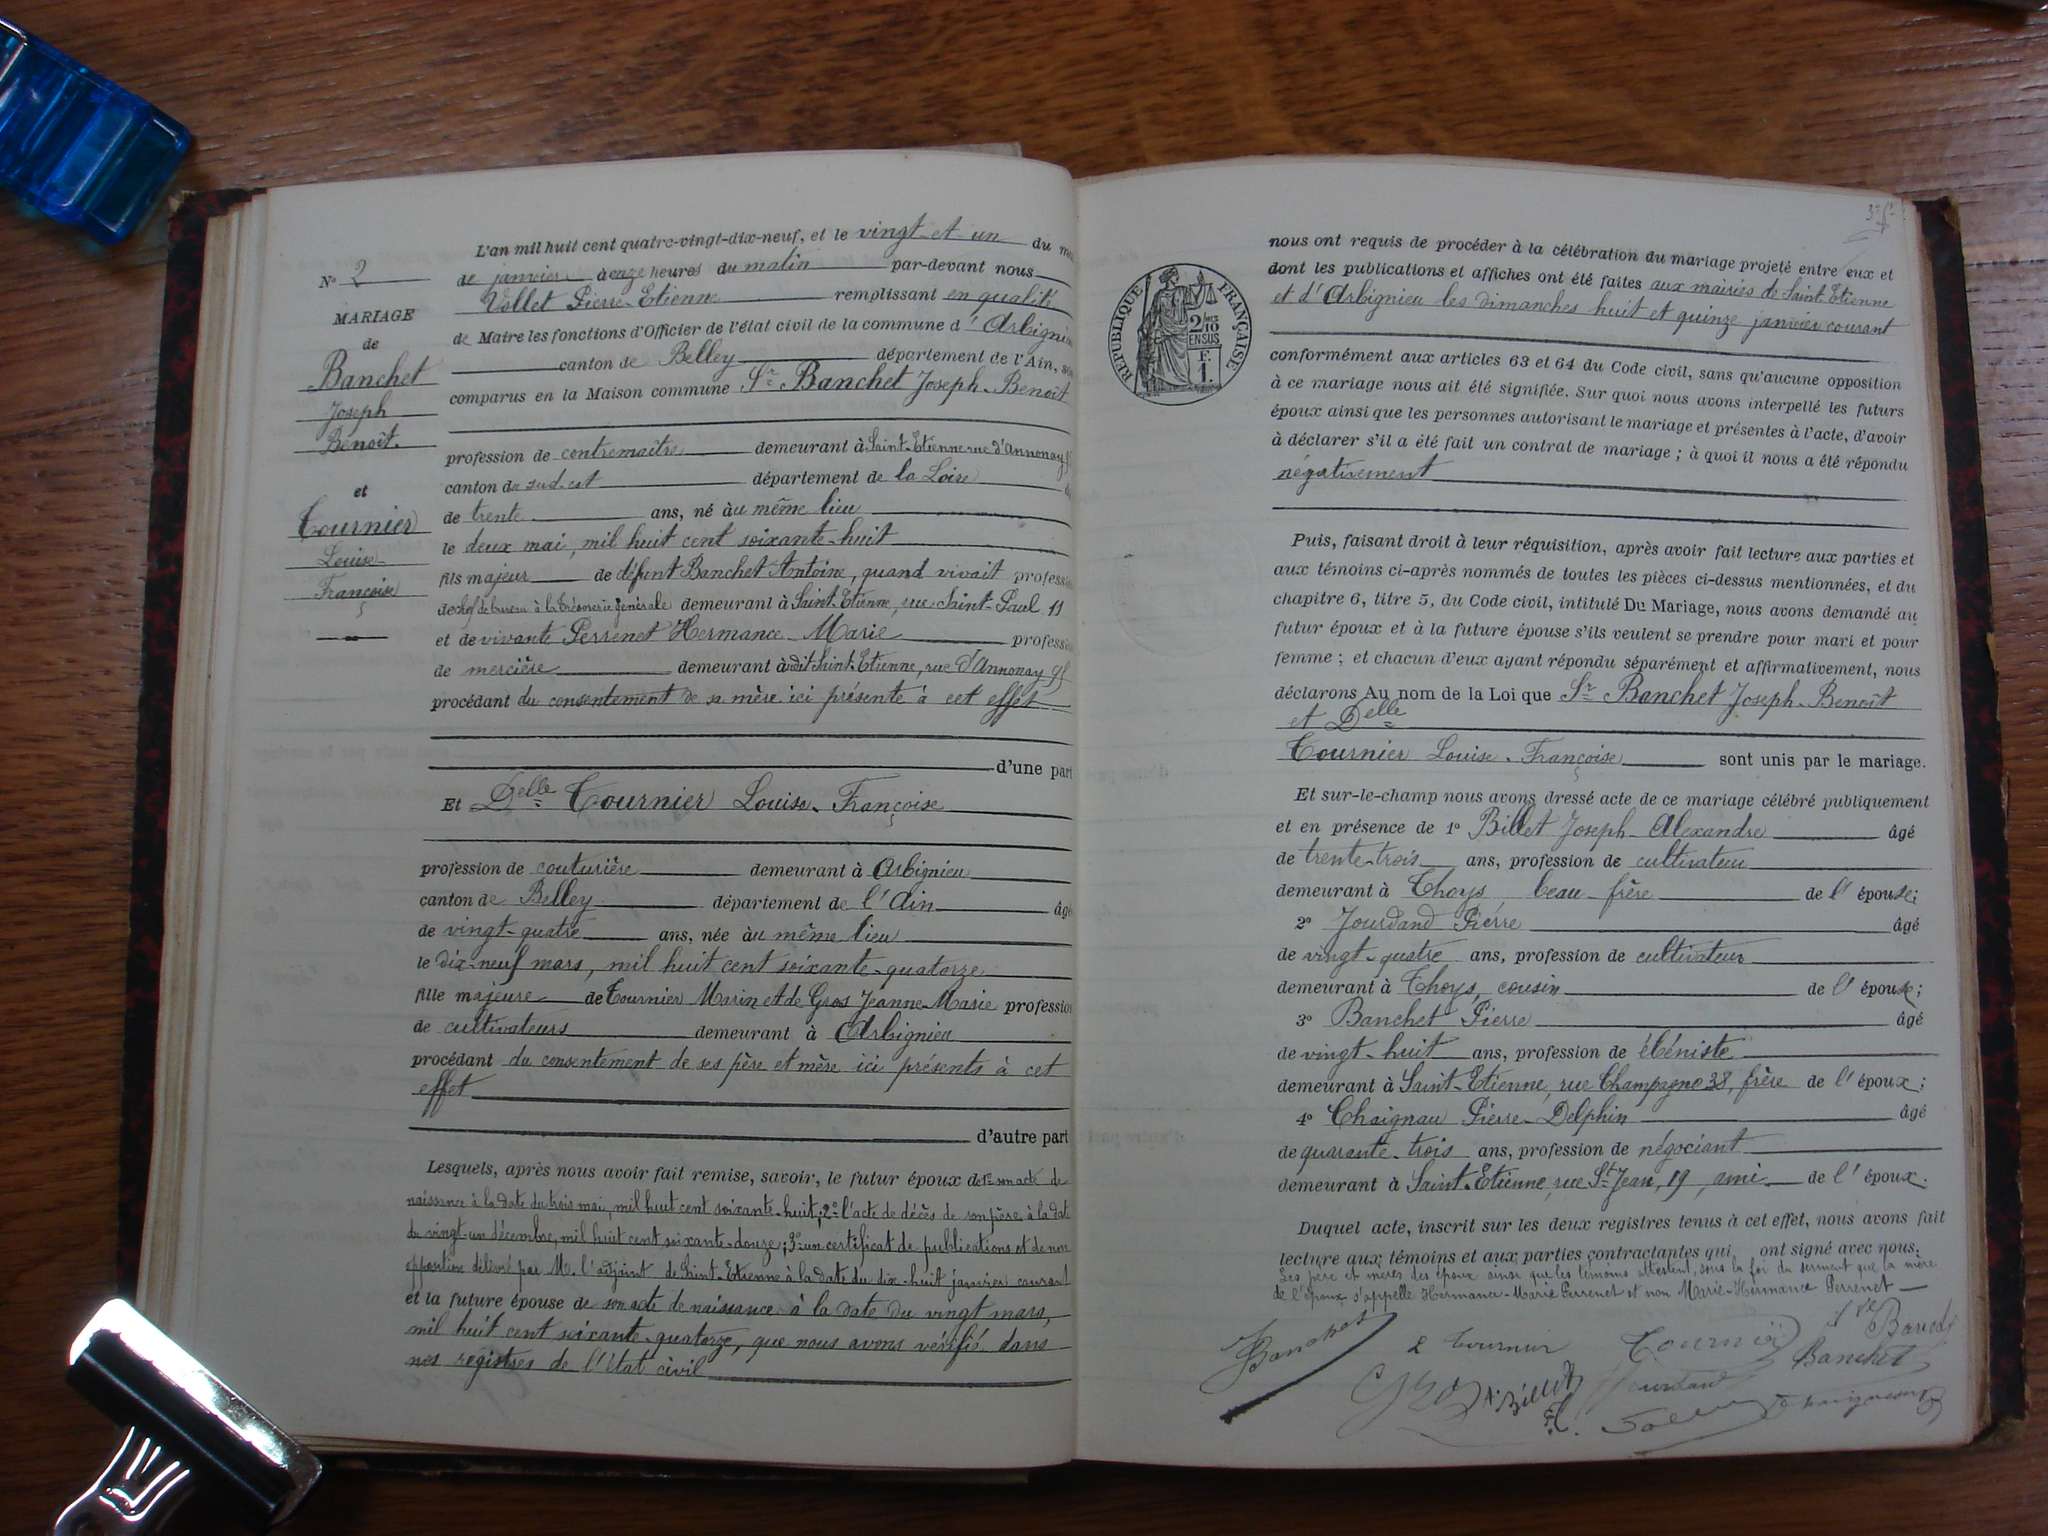 N° 2
MARIAGE
de
Banchet
Joseph
Benoît.
et
Tournier
Louise-
Françoise
L'an mil huit cent quatre-vingt-dix-neuf, et le vingt-et-un du
de janvier à onze heures du matin par-devant nous
Vallet Pierre-Etienne remplissant en qualité
de Maire les fonctions d'Officier de l'état civil de la commune d'Arbignieu
canton de Belley département de l'Ain,
comparus en la Maison commune Sr Banchet Joseph-Benoît
profession de contremaître demeurant à Saint-Etienne rue d'Annonay
canton de sud-est département de la Loire
de trente ans, né àu même lieu
le deux mai, mil huit cent soixante-huit
fils majeur de défunt Banchet Antoine, quand vivait profession
de chef de bureau à la trésorerie générale demeurant à Saint-Etienne, rue Saint-Paul 11
et de vivante Perrenet Hermance-Marie profession
de mercière demeurant àudit Saint-Etienne, rue d'Annonay
procédant du consentement de sa mère ici présente à cet effet
d'une part
Et Delle Tournier Louise-Françoise
profession de couturière demeurant à Arbignieu
canton de Belley département de l'Ain âgé
de vingt-quatre ans, née àu même lieu
le dix-neuf mars, mil huit cent soixante-quatorze
fille majeure de Tournier Marin et de Gros Jeanne-Marie profession
de cultivateurs demeurant à Arbignieu
procédant du consentement de ses père et mère ici présents à cet
effet
d'autre part
Lesquels, après nous avoir fait remise, savoir, le futur époux de 1° son acte de
naissance à la date du trois mai, mil huit cent soixante-huit; 2° l'acte de décès de son père à la date
du vingt-un décembre, mil huit cent soixante-douze; 3° un certificat de publications et de non
opposition délivré par M. l'adjoint de Saint-Etienne à la date du dix-huit janvier courant
et la future épouse de son acte de naissance à la date du vingt mars,
mil huit cent soixante-quatorze, que nous avons vérifié dans
nos registres de l'état civil
RÉPUBLIQUE FRANÇAISE
2/10
EN SUS
F.
1.
nous ont requis de procéder à la célébration du mariage projeté entre eux et
dont les publications et affiches ont été faites aux mairies de Saint-Etienne
et d'Arbignieu les dimanches huit et quinze janvier courant
conformément aux articles 63 et 64 du Code civil, sans qu'aucune opposition
à ce mariage nous ait été signifiée. Sur quoi nous avons interpellé les futurs
époux ainsi que les personnes autorisant le mariage et présentes à l'acte, d'avoir
à déclarer s'il a été fait un contrat de mariage; à quoi il nous a été répondu
négativement
Puis, faisant droit à leur réquisition, après avoir fait lecture aux parties et
aux témoins ci-après nommés de toutes les pièces ci-dessus mentionnées, et du
chapitre 6, titre 5, du Code civil, intitulé Du Mariage, nous avons demandé au
futur époux et à la future épouse s'ils veulent se prendre pour mari et pour
femme; et chacun d'eux ayant répondu séparément et affirmativement, nous
déclarons Au nom de la Loi que Sr Banchet Joseph-Benoît
et Delle
Tournier Louise-Françoise sont unis par le mariage.
Et sur-le-champ nous avons dressé acte de ce mariage célébré publiquement
et en présence de 1° Billet Joseph-Alexandre âgé
de trente-trois ans, profession de cultivateur
demeurant à Thoys, beau-frère de l'épouse;
2° Jourdand Pierre âgé
de vingt-quatre ans, profession de cultivateur
demeurant à Thoys, cousin de l'épouse;
3° Banchet Pierre âgé
de vingt-huit ans, profession de ébéniste
demeurant à Saint-Etienne, rue Champagne 38, frère de l'époux;
4° Chaignau Pierre-Delphin âgé
de quarante-trois ans, profession de négociant
demeurant à Saint-Etienne, rue St Jean, 19, ami de l'époux.
Duquel acte, inscrit sur les deux registres tenus à cet effet, nous avons fait
lecture aux témoins et aux parties contractantes qui ont signé avec nous.
Les père et mères des époux ainsi que les témoins attestent, sous la foi du serment que la mère
de l'époux s'appelle Hermance-Marie Perrenet et non Marie-Hermance Perrenet
Banchet
L Tournier
Tournier
Banchet
Billet
Jourdand